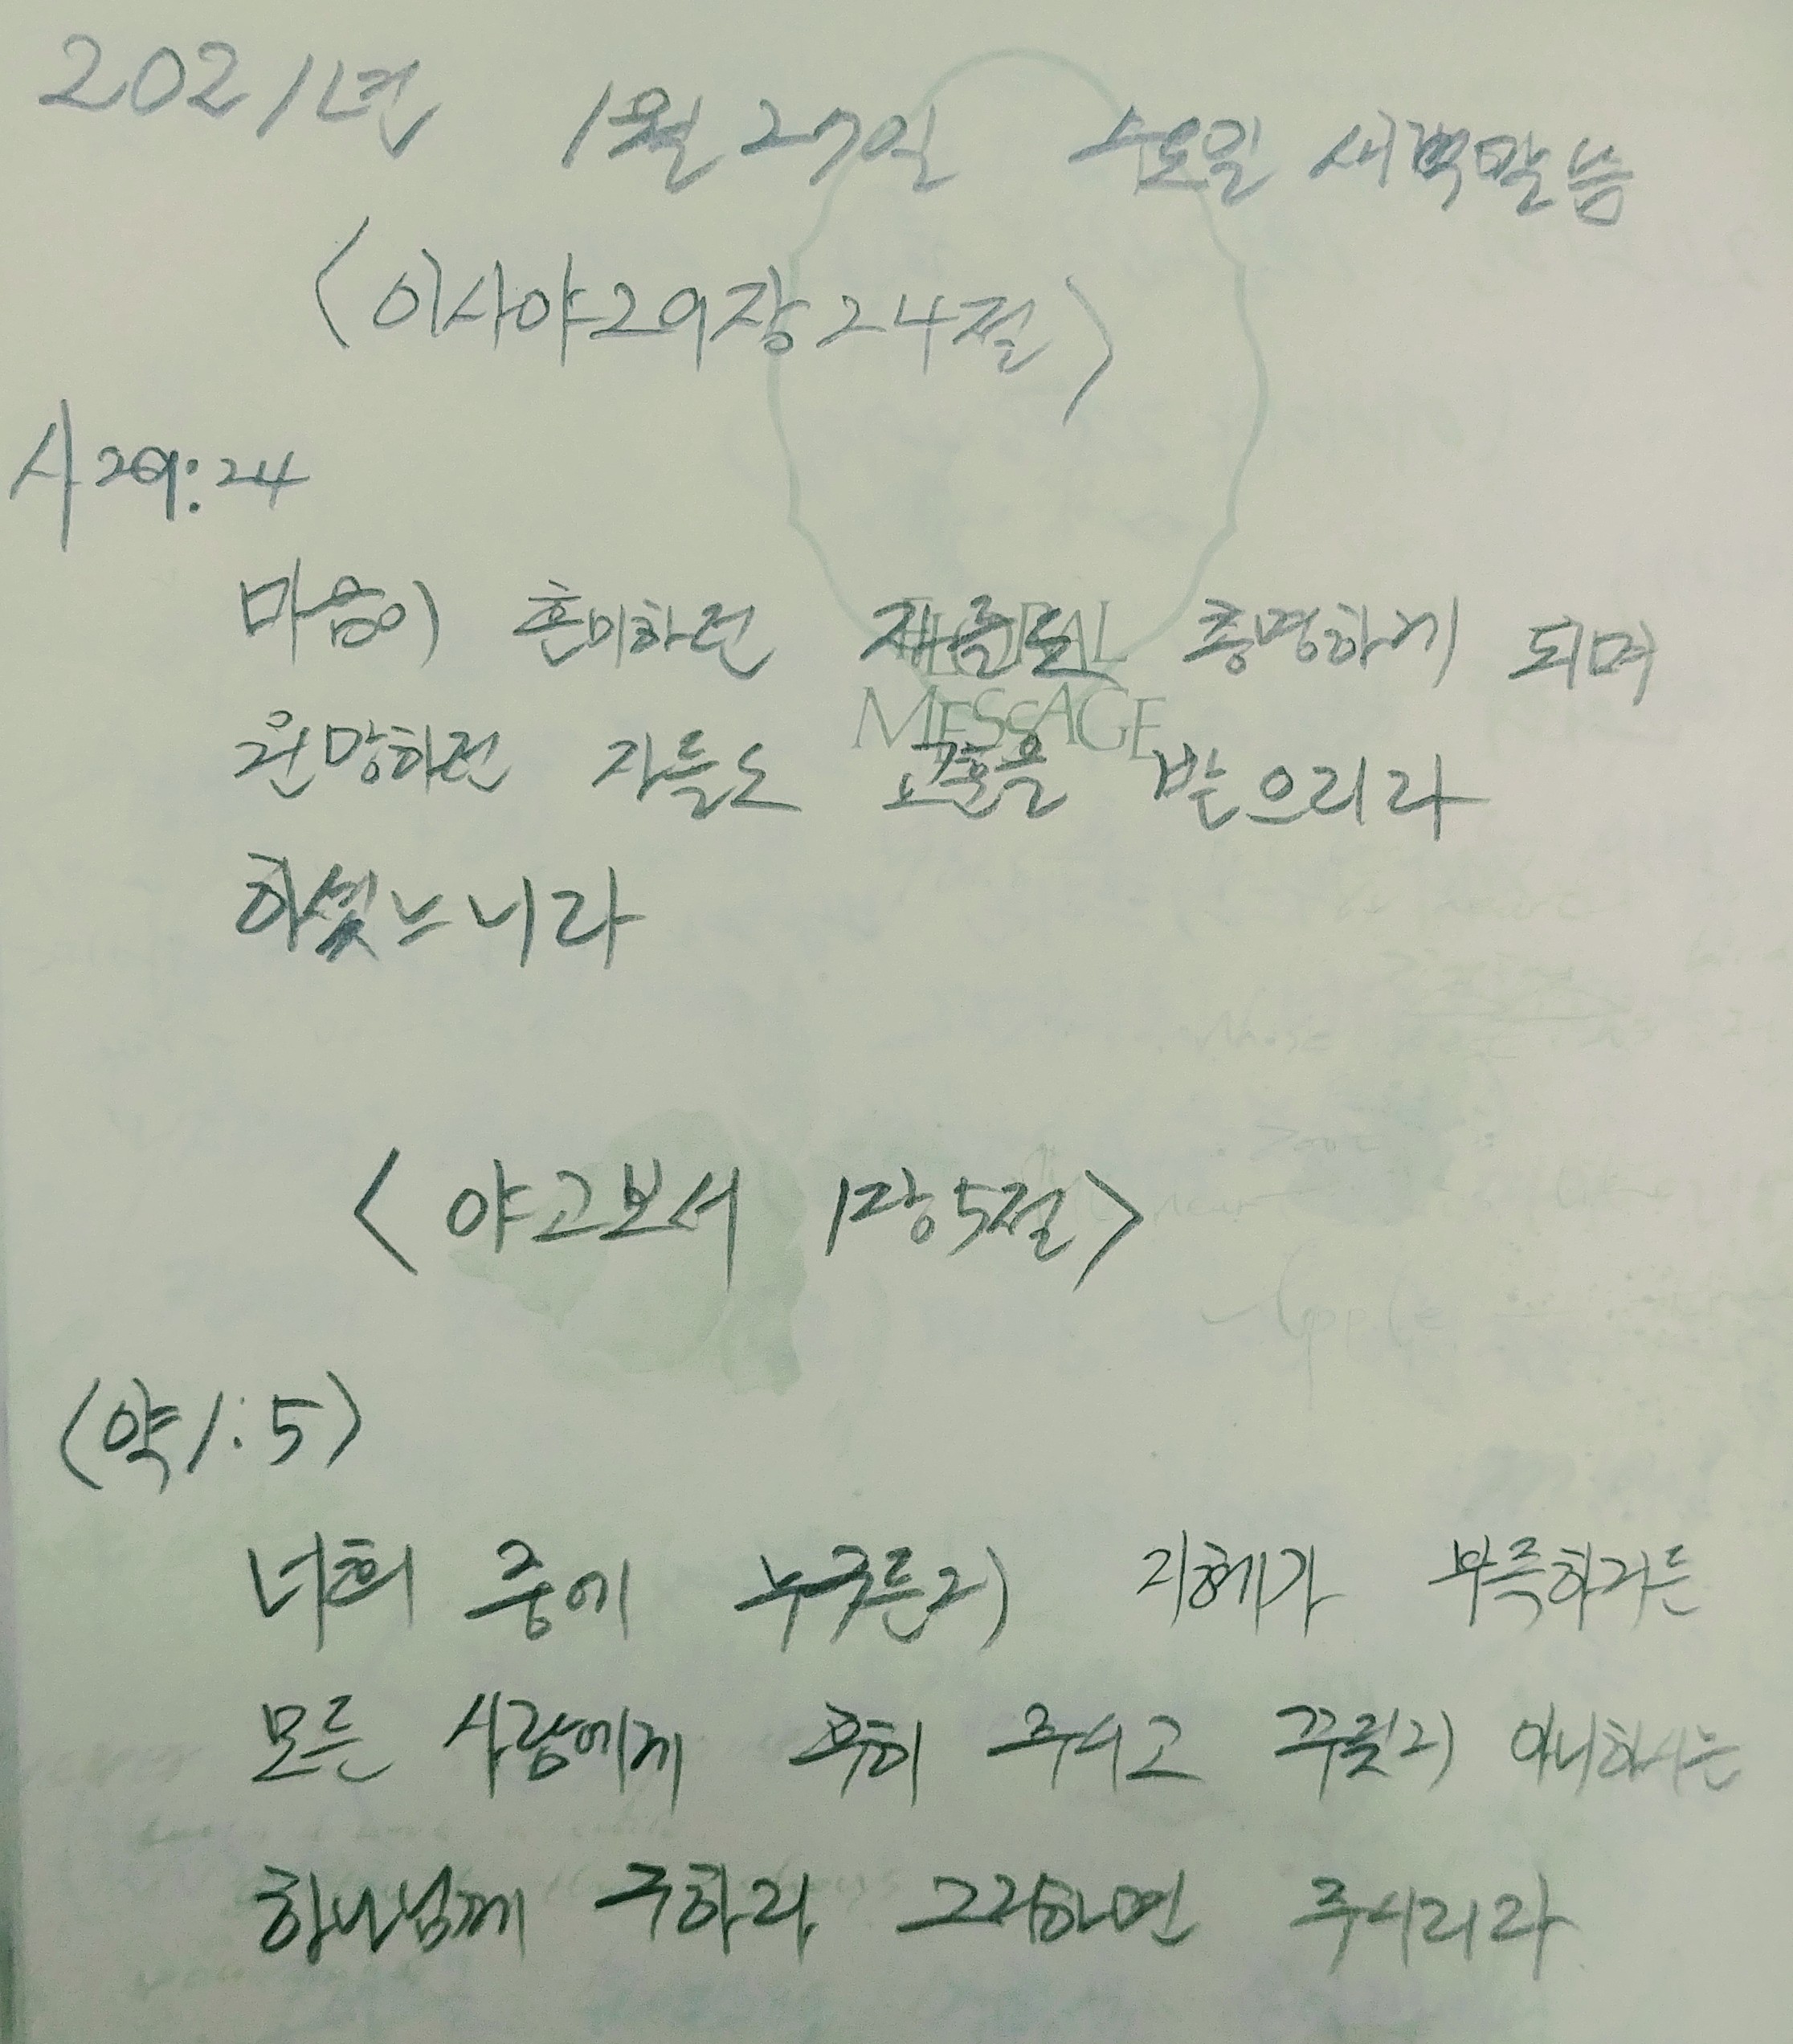 2021년 1월 27일 수요일 새벽말씀
<이사야29장24절>
사29:24
마음이 혼미하던 자들도 총명하게 되며
FLORAL
MESSAGE
원망하던 자들도 교훈을 받으리라
하셨느니라
<야고보서 1장5절>
<약1:5>
너희 중에 누구든지 지혜가 부족하거든
모든 사람에게 후히 주시고 꾸짖지 아니하시는
하나님께 구하라 그리하면 주시리라